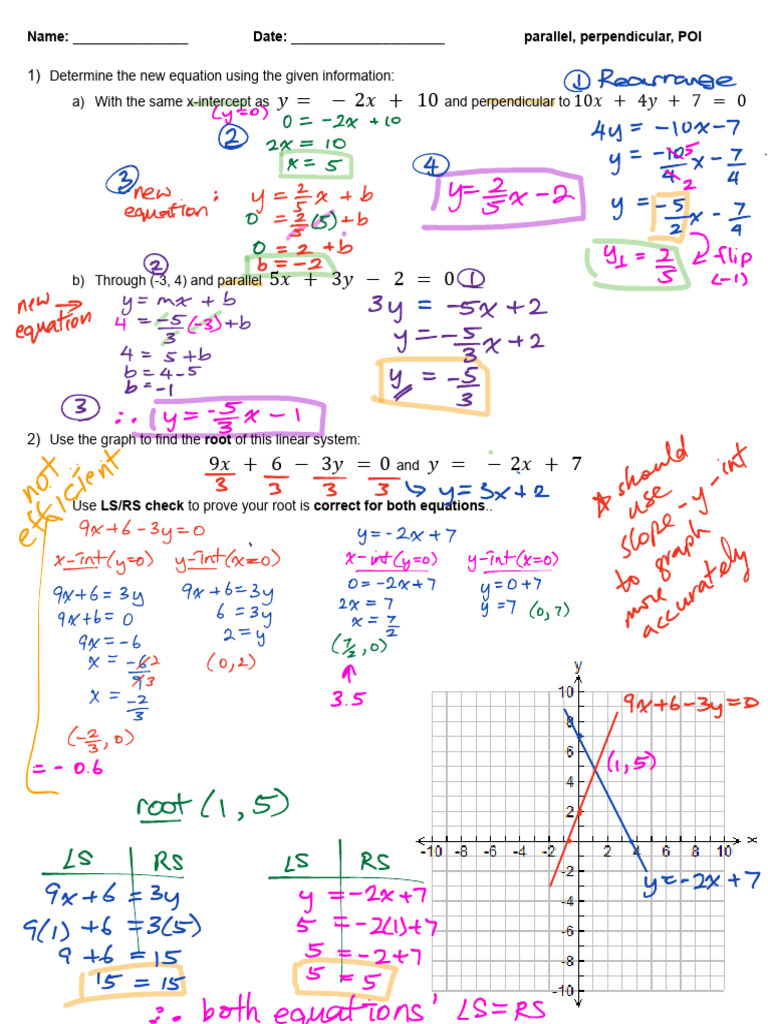 Name: ________________ Date: ______________________ parallel, perpendicular, POI
1) Determine the new equation using the given information:
① Rearrange
a) With the same x-intercept as y = − 2x + 10 and perpendicular to 10x + 4y + 7 = 0
(y=0)
②
0 = -2x + 10
2x = 10
x = 5
4y = -10x - 7
y = -10/4 x - 7/4
5
2
y = -5/2 x - 7/4
y⊥ = 2/5
flip
(-1)
③ new equation :
y = 2/5 x + b
0 = 2/5 (5) + b
0 = 2 + b
b = -2
④
y = 2/5 x - 2
b) Through (-3, 4) and parallel 5x + 3y − 2 = 0 ①
②
new equation →
y = mx + b
4 = -5/3 (-3) + b
4 = 5 + b
b = 4 - 5
b = -1
3y = -5x + 2
y = -5/3 x + 2
y = -5/3
③ ∴ y = -5/3 x - 1
2) Use the graph to find the root of this linear system:
9x + 6 − 3y = 0 and y = − 2x + 7
3 3 3 3
↳ y = 3x + 2
Use LS/RS check to prove your root is correct for both equations..
not efficient
* should use slope-y-int to graph more accurately
9x + 6 - 3y = 0
x-int (y=0)
9x + 6 = 3y
9x + 6 = 0
9x = -6
x = -6/9
2
3
x = -2/3
(-2/3, 0)
= - 0.6
y-int (x=0)
9x + 6 = 3y
6 = 3y
2 = y
(0, 2)
y = -2x + 7
x-int (y=0)
0 = -2x + 7
2x = 7
x = 7/2
(7/2, 0)
↑
3.5
y-int (x=0)
y = 0 + 7
y = 7 (0, 7)
root (1, 5)
LS RS
9x + 6 = 3y
9(1) + 6 = 3(5)
9 + 6 = 15
15 = 15
LS RS
y = -2x + 7
5 = -2(1) + 7
5 = -2 + 7
5 = 5
∴ both equations' LS = RS
y
10
8
6
4
2
-10 -8 -6 -4 -2 2 4 6 8 10 x
-2
-4
-6
-8
-10
9x + 6 - 3y = 0
(1, 5)
y = -2x + 7